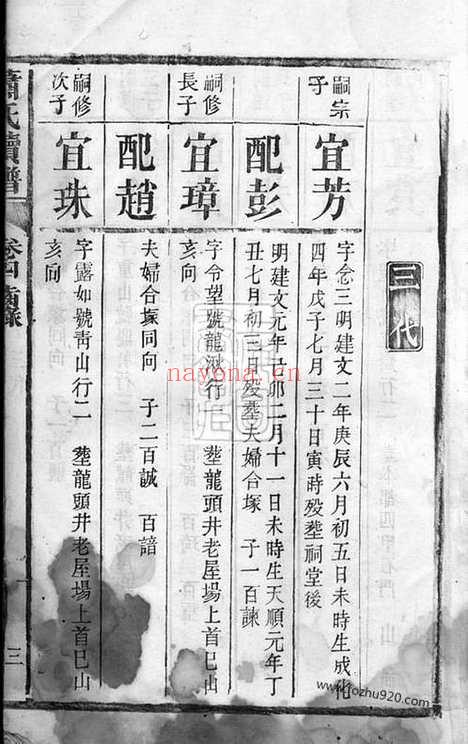 三代
嗣宗
子
宜芳
字念三明建文二年庚辰六月初五日未時生成化
四年戊子七月三十日寅時殁塟祠堂後
配彭
明建文元年己卯二月十一日未時生天順元年丁
丑七月初三日殁塟夫婦合塚 子一百諫
嗣修
長子
宜璋
字令望號龍湫行一 塟龍頭井老屋場上首巳山
亥向
配趙
夫婦合塚同向 子二百誠 百諳
嗣修
次子
宜珠
字露如號靑山行二 塟龍頭井老屋場上首巳山
亥向
蕭氏續譜
卷四 齒錄
三
nayona.cn
fozhu920.com